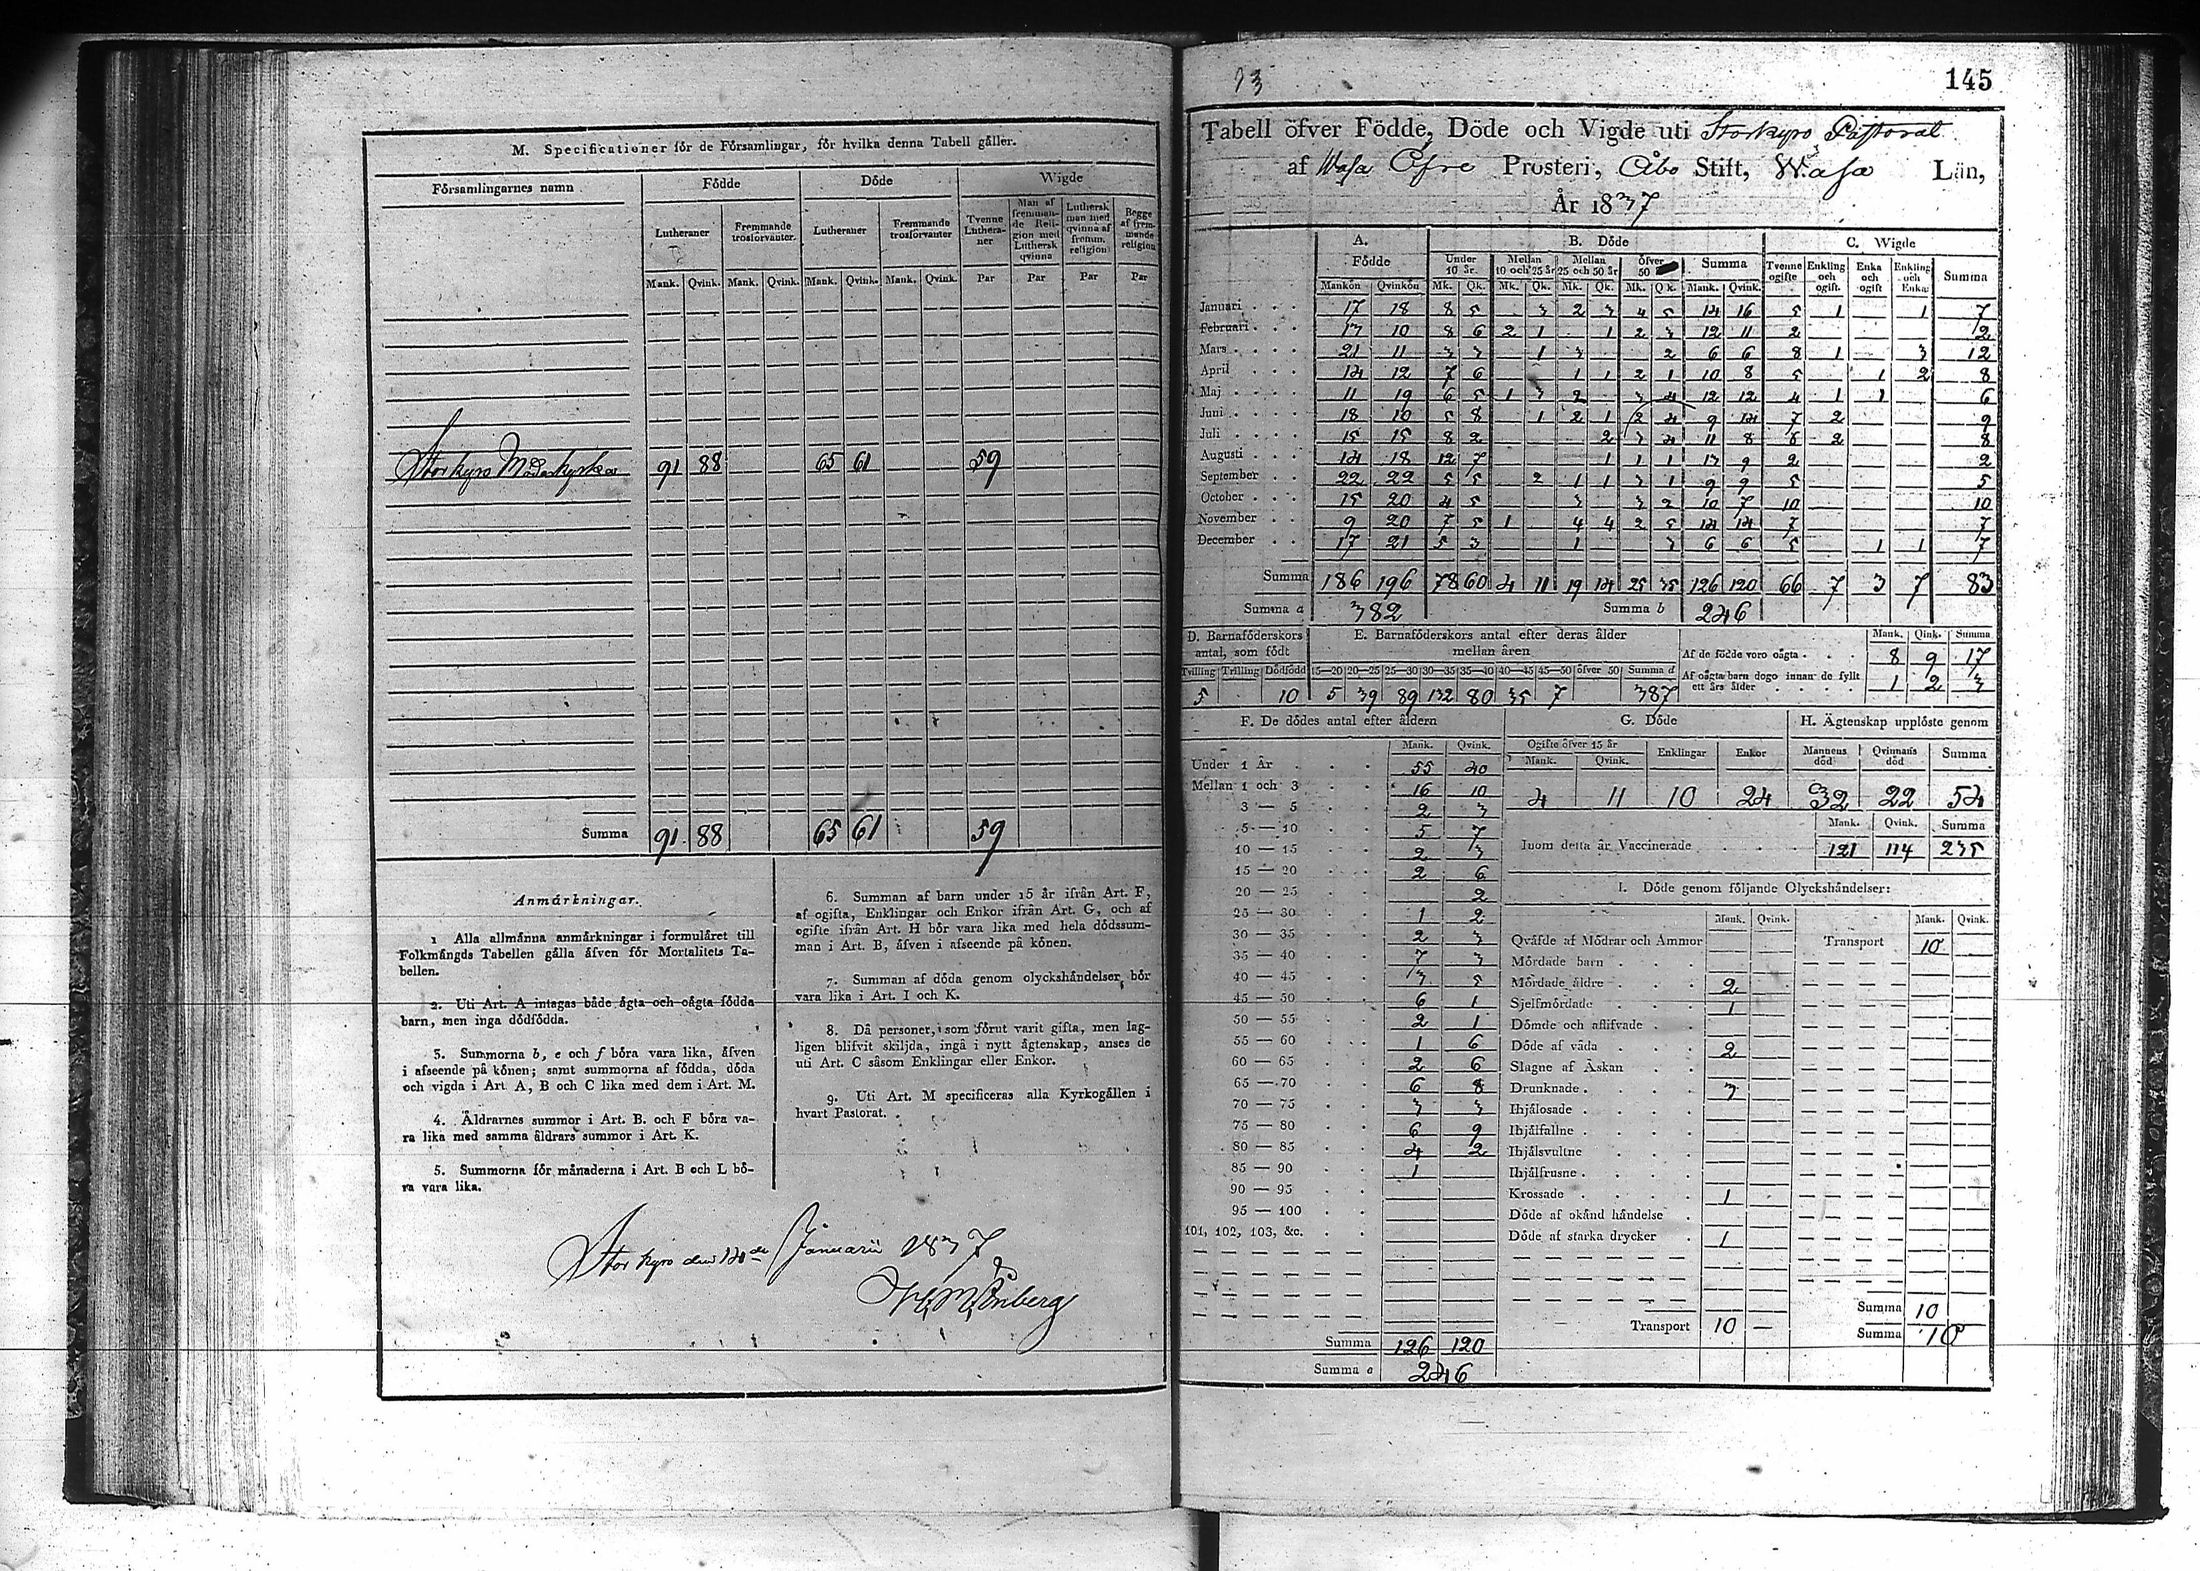 M. Specificationer för de Församlingar, för hvilka denna Tabell gäller.
Församlingarnes namn Födde Döde Wigde
Lutheraner Fremmande trosförvanter. Lutheraner Fremmande trosförvanter Tvenne Lutheraner Man af fremmande Religion med Luthersk qvinna Luthersk man med qvinna af fremm. religion Begge af fremmande religion
Mank. Qvink. Mank. Qvink. Mank. Qvink. Mank. Qvink. Par Par Par Par
Storkyro Moderkyrka 91 88 65 61 59
Summa 91 88 65 61 59
Anmärkningar.
1 Alla allmänna anmärkningar i formuläret till
Folkmängds Tabellen gälla äfven för Mortalitets Ta-
bellen.
2. Uti Art. A intagas både ägta och oägta födda
barn, men inga dödfödda.
3. Summorna b, e och f böra vara lika, äfven
i afseende på könen; samt summorna af födda, döda
och vigda i Art. A, B och C lika med dem i Art. M.
4. Åldrarnes summor i Art. B. och F böra va-
ra lika med samma åldrars summor i Art. K.
5. Summorna för månaderna i Art. B och L bö-
ra vara lika.
6. Summan af barn under 15 år ifrån Art. F,
af ogifta, Enklingar och Enkor ifrån Art. G, och af
ogifte ifrån Art. H bör vara lika med hela dödssum-
man i Art. B, äfven i afseende på könen.
7. Summan af döda genom olyckshändelser bör
vara lika i Art. I och K.
8. Då personer, som förut varit gifta, men lag-
ligen blifvit skiljda, ingå i nytt ägtenskap, anses de
uti Art. C såsom Enklingar eller Enkor.
9. Uti Art. M specificeras alla Kyrkogällen i
hvart Pastorat.
Storkyro den 14de Januarii 1837
145
Tabell öfver Födde, Döde och Vigde uti Storkyro Pastorat
af Wasa Öfre Prosteri, Åbo Stift, Wasa Län,
År 1837
A. Födde B. Döde C. Wigde
Under 10 år. Mellan 10 och 25 år Mellan 25 och 50 år Öfver 50 Summa Tvenne ogifte Enkling och ogift. Enka och ogift Enkling och Enka: Summa
Mankön Qvinkön Mk. Qk. Mk. Qk. Mk. Qk. Mk. Qk. Mank. Qvink.
Januari 17 18 8 5 3 2 3 4 5 14 16 5 1 1 7
Februari 13 10 8 6 2 1 1 2 3 12 11 2 2
Mars 21 11 3 3 1 3 2 6 6 8 1 3 12
April 14 12 7 6 1 1 2 1 10 8 5 1 2 8
Maj 11 19 6 5 1 3 2 3 4 12 12 4 1 1 6
Juni 18 10 5 8 1 2 1 2 4 9 14 7 2 9
Juli 15 15 8 2 2 3 4 11 8 6 2 8
Augusti 14 18 12 7 1 1 1 13 9 2 2
September 22 22 5 5 2 1 1 3 1 9 9 5 5
October 15 20 4 5 3 3 2 10 7 10 10
November 9 20 7 5 1 4 4 2 5 14 14 7 7
December 17 21 5 3 1 3 6 6 5 1 1 7
Summa 186 196 78 60 4 11 19 14 25 35 126 120 66 7 3 7 83
Summa a 382 Summa b 246
D. Barnaföderskors antal, som födt
Tvilling Trilling Dödfödd
5 10
E. Barnaföderskors antal efter deras ålder mellan åren
15—20 20—25 25—30 30—35 35—40 40—45 45—50 öfver 50 Summa d
5 39 89 132 80 35 7 387
Mank. Qink. Summa
Af de födde voro oägta 8 9 17
Af oägta barn dogo innan de fyllt ett års ålder 1 2 3
F. De dödes antal efter åldern
Mank. Qvink.
Under 1 År 55 40
Mellan 1 och 3 16 10
3 — 5 2 3
5 — 10 5 7
10 — 15 2 3
15 — 20 2 6
20 — 25 2
25 — 30 1 2
30 — 35 2 3
35 — 40 7 3
40 — 45 3 5
45 — 50 6 1
50 — 55 2 1
55 — 60 1 6
60 — 65 2 6
65 — 70 6 8
70 — 75 3 3
75 — 80 6 9
80 — 85 4 2
85 — 90 1
90 — 95
95 — 100
101, 102, 103, &c.
Summa 126 120
Summa e 246
G. Döde
Ogifte öfver 15 år Enklingar Enkor
Mank. Qvink.
4 11 10 24
H. Ägtenskap upplöste genom
Mannens död Qvinnans död Summa
32 22 54
Mank. Qvink. Summa
Inom detta år Vaccinerade 121 114 235
I. Döde genom följande Olyckshändelser:
Mank. Qvink. Mank. Qvink.
Qväfde af Mödrar och Ammor Transport 10
Mördade barn
Mördade äldre 2
Sjelfmördade 1
Dömde och aflifvade
Döde af våda 2
Slagne af Åskan
Drunknade 3
Ihjälosade
Ihjälfallne
Ihjälsvultne
Ihjälfrusne
Krossade 1
Döde af okänd händelse
Döde af starka drycker 1
Summa 10
Transport 10 — Summa 10